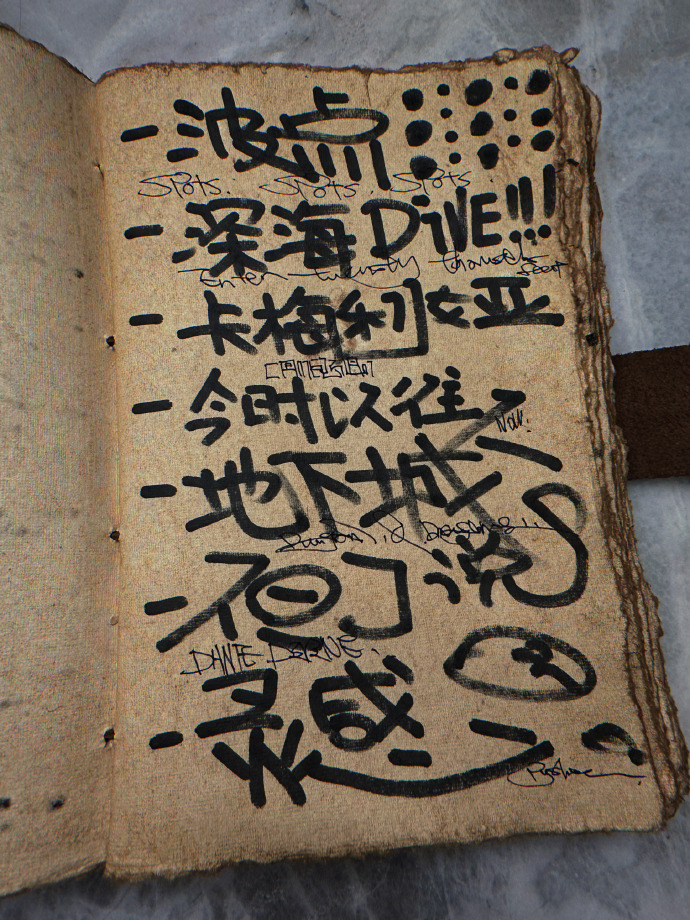 - 波点
Spots. Spots. Spots.
- 深海 DiVE!!!
Enter twenty thousand feet
- 卡梅利女亚
CAMELLIA
- 今时以往
Now!
- 地下城
Dungeons & Dragons!!
说
DANTE
- 灵感